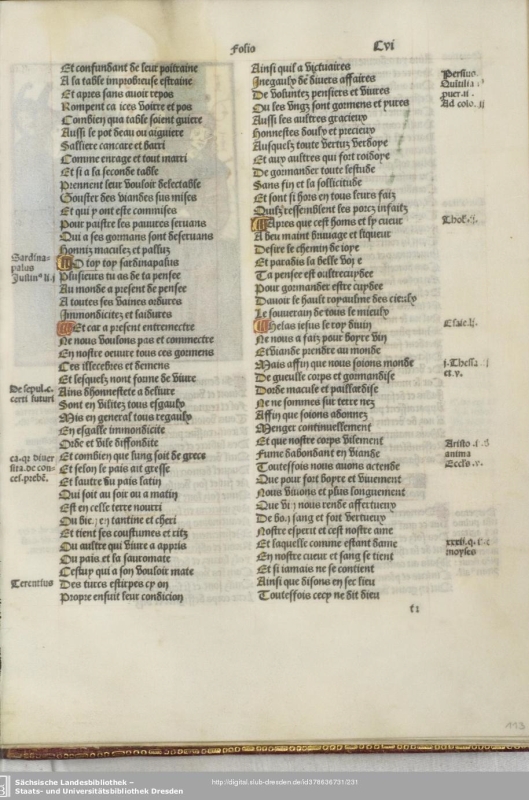 Folio
Cvi
Et confundant de leur poitraine
A la table improbreuse estraine
Et apres sans auoir repos
Rompent ca ices voirre et pos
Combien qua table soient guiere
Aussi le pot beau ou aiguiere
Salliere cancare et barri
Comme enrage et tout marri
Et si a la seconde table
Prennent leur vouloir delectable
Gouster des viandes sus mises
Et qui y ont este commises
Pour paistre les pauures seruans
Qui a ses gormans sont deseruans
Honniz maculez et polluz
O top top sardinapalus
Plusieurs tu as de ta pensee
Au monde a present de pensee
A toutes ses vaines ordures
Immondicitez et laidures
Et car a present entremectre
Ne nous voulons pas et commectre
En nostre oeuure tous ces gormens
Ces illecebres et demens
Et lesquelz nont forme de viure
Ains dhonnestete a deliure
Sont en vilitez tous esgaulx
Mis en general tous regaulx
En esgalle immondicite
Orde et vile diffondite
Et combien que lung soit de grece
Et selon le pais ait gresse
Et lautre du pais latin
Qui soit au soir ou a matin
Est en celle terre nourri
Ou bien en tantine et cheri
Et tient ses coustumes et ritz
Ou aultre qui viure a appris
Ou pais et la sautomate
Cestuy qui a son vouloir mate
Des turcs estirpes cy on
Propre ensuit leur condicion
Sardina-
palus
Justin⁹ li.j
De sepul.c.
certi futuri
ca.qz diuer
sita.de con-
ces.prebē.
Terentius
Ainsi quil a victuaires
Inegaulx de diuers affaires
De voluntez pensiers et viures
Ou les vngz sont gormens et yures
Aussi les aultres gracieux
Honnestes doulx et precieux
Ausquelz toute vertuz verdoye
Et aux aultres qui fort roidoye
De gormander toute lestude
Sans fin et la sollicitude
Et sont si hors en tous leurs faiz
Quilz ressemblent les porcz infaitz
Apres que cest homs et ly cueur
A beu maint bruuage et liqueur
Desire le chemin de ioye
Et paradis la belle voye
Ta pensee est oultrecuydee
Pour gormander estre cuydee
Dauoir le hault royaulme des cieulx
Le souuerain de tous le mieulx
Helas iesus le roy diuin
Ne nous a faiz pour boyre vin
Et viande prendre au monde
Mais affin que nous soions monde
De gueulle corps et gormandise
Dorde macule et paillardise
Ne ne sommes sur terre nez
Affin que soions adonnez
Menger continuellement
Et que nostre corps vilement
Fume dabondant en viande
Toutesfois nous auons actende
Que pour fort boyre et viuement
Nous viuons et plus longuement
Que vin nous rende affectueux
De bon sang et fort vertueux
Nostre esperit et cest nostre ame
Et laquelle comme estant dame
En nostre cueur et sang se tient
Et si iamais ne se contient
Ainsi que disons en sec lieu
Toutesfois cecy ne dit dieu
Persius.
Quintia
puer.ii.
Ad colo.ij
Thob.ij.
Esaie.lj.
j.Thessa
et.v.
Aristo
anima
Eccls.v.
xxxii.q.
moyses
ti
113
Sächsische Landesbibliothek –
Staats- und Universitätsbibliothek Dresden
http://digital.slub-dresden.de/id378636731/231